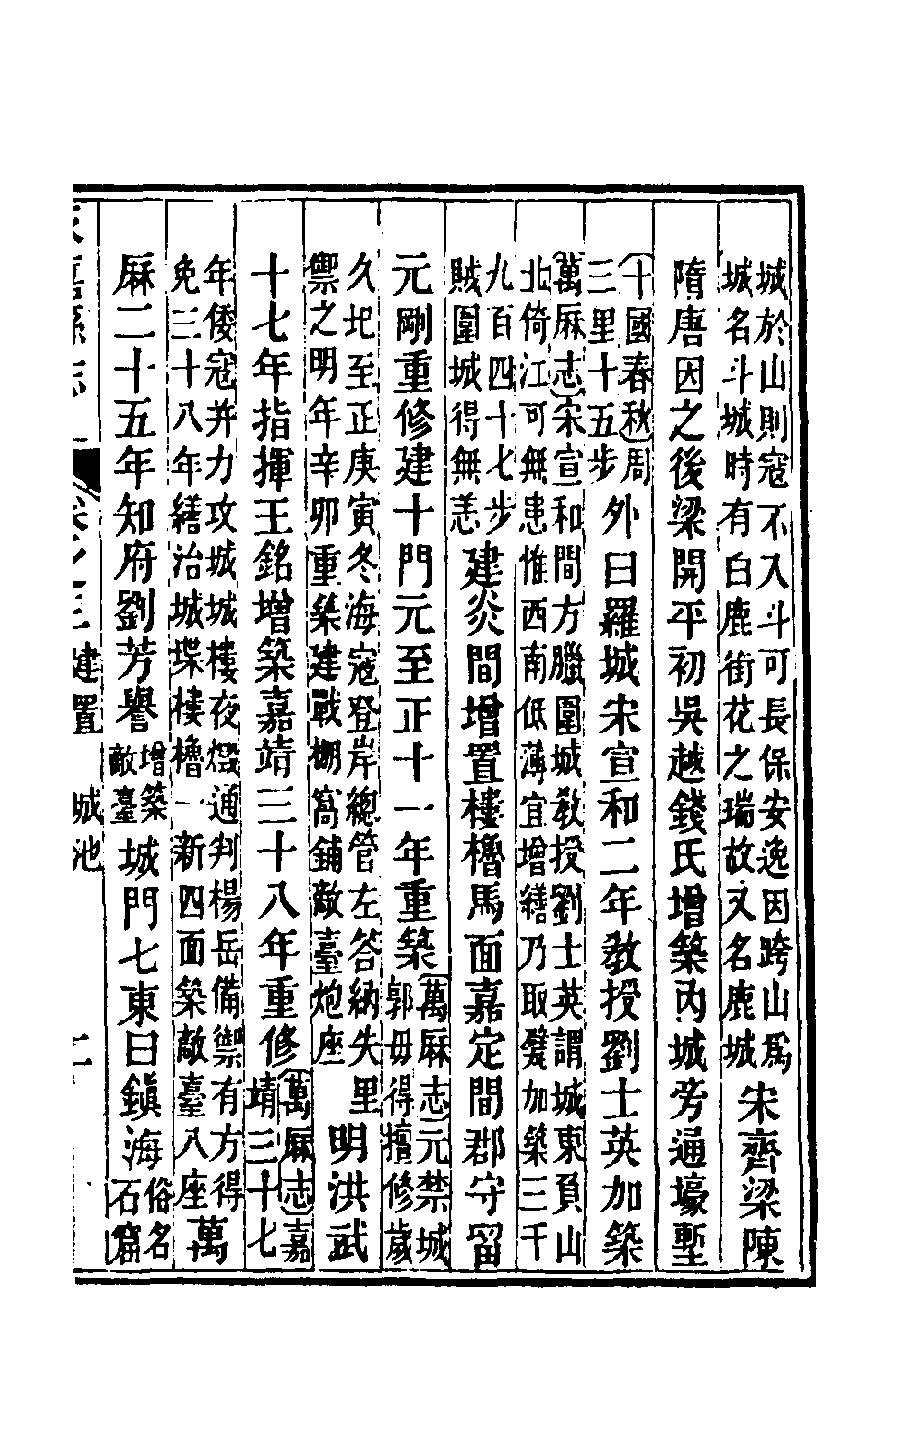 城於山則寇不入斗可長保安逸因跨山爲
城名斗城時有白鹿銜花之瑞故又名鹿城
宋齊梁陳
隋唐因之後梁開平初吳越錢氏增築內城旁通壕塹
十國春秋周
三里十五步
外曰羅城宋宣和二年教授劉士英加築
萬厤志宋宣和間方臘圍城教授劉士英謂城東負山
北倚江可無患惟西南低薄宜增繕乃取甓加築三千
九百四十七步
賊圍城得無恙
建炎間增置樓櫓馬面嘉定間郡守留
元剛重修建十門元至正十一年重築
萬厤志元禁城
郭毋得擅修歲
久圯至正庚寅冬海寇登岸總管左答納失里
禦之明年辛卯重築建戰棚窩鋪敵臺炮座
明洪武
十七年指揮王銘增築嘉靖三十八年重修
萬厤志嘉
靖三十七
年倭寇并力攻城城樓夜燬通判楊岳備禦有方得
免三十八年繕治城堞樓櫓一新四面築敵臺八座
萬
厤二十五年知府劉芳譽
增築
敵臺
城門七東曰鎮海
俗名
石窩
嘉縣志 卷之三 建置 城池 二